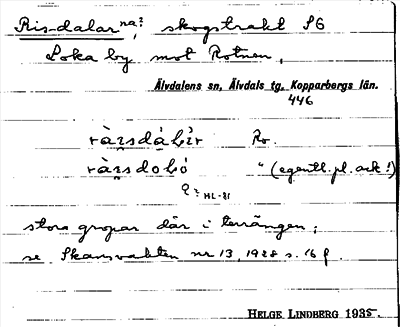 Ris-dalarna?, skogstrakt SG
Loka by mot Rotnen,
Älvdalens sn, Älvdals tg, Kopparbergs län.
446
Ro.
" (egentl. pl. ack!)
HL-81
stora gropar där i terrängen;
se Skansvakten nr 13, 1928 s. 16 f.
HELGE LINDBERG 1935.